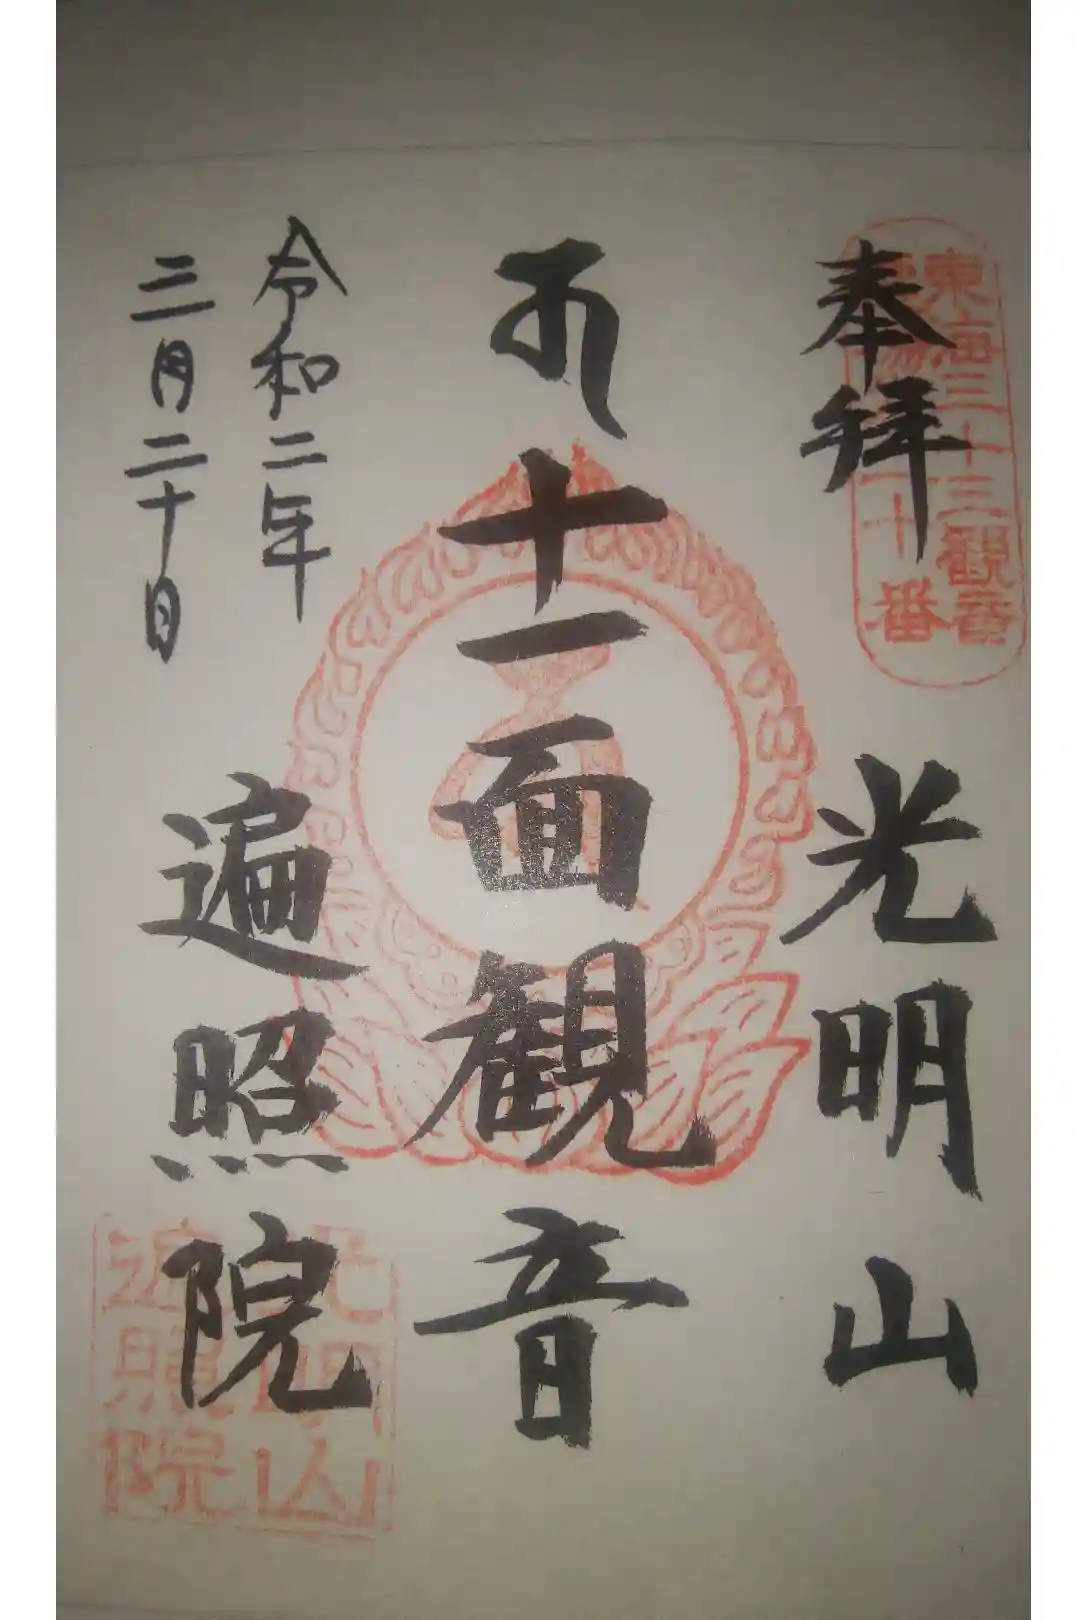 奉拝
光明山
東海三十三観音
十番
十一面観音
令和二年
三月二十日
遍照院
光明山
遍照院